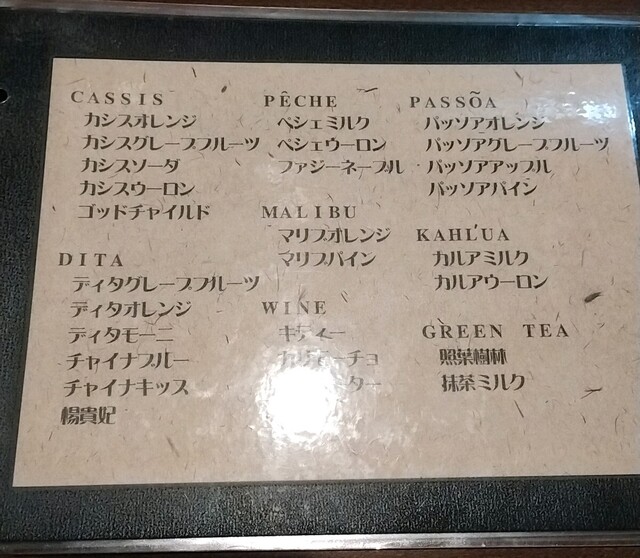 CASSIS
カシスオレンジ
カシスグレープフルーツ
カシスソーダ
カシスウーロン
ゴッドチャイルド
DITA
ディタグレープフルーツ
ディタオレンジ
ディタモーニ
チャイナブルー
チャイナキッス
楊貴妃
PÊCHE
ペシェミルク
ペシェウーロン
ファジーネーブル
MALIBU
マリブオレンジ
マリブパイン
WINE
キティー
PASSÕA
パッソアオレンジ
パッソアグレープフルーツ
パッソアアップル
パッソアパイン
KAHLUA
カルアミルク
カルアウーロン
GREEN TEA
照葉樹林
抹茶ミルク